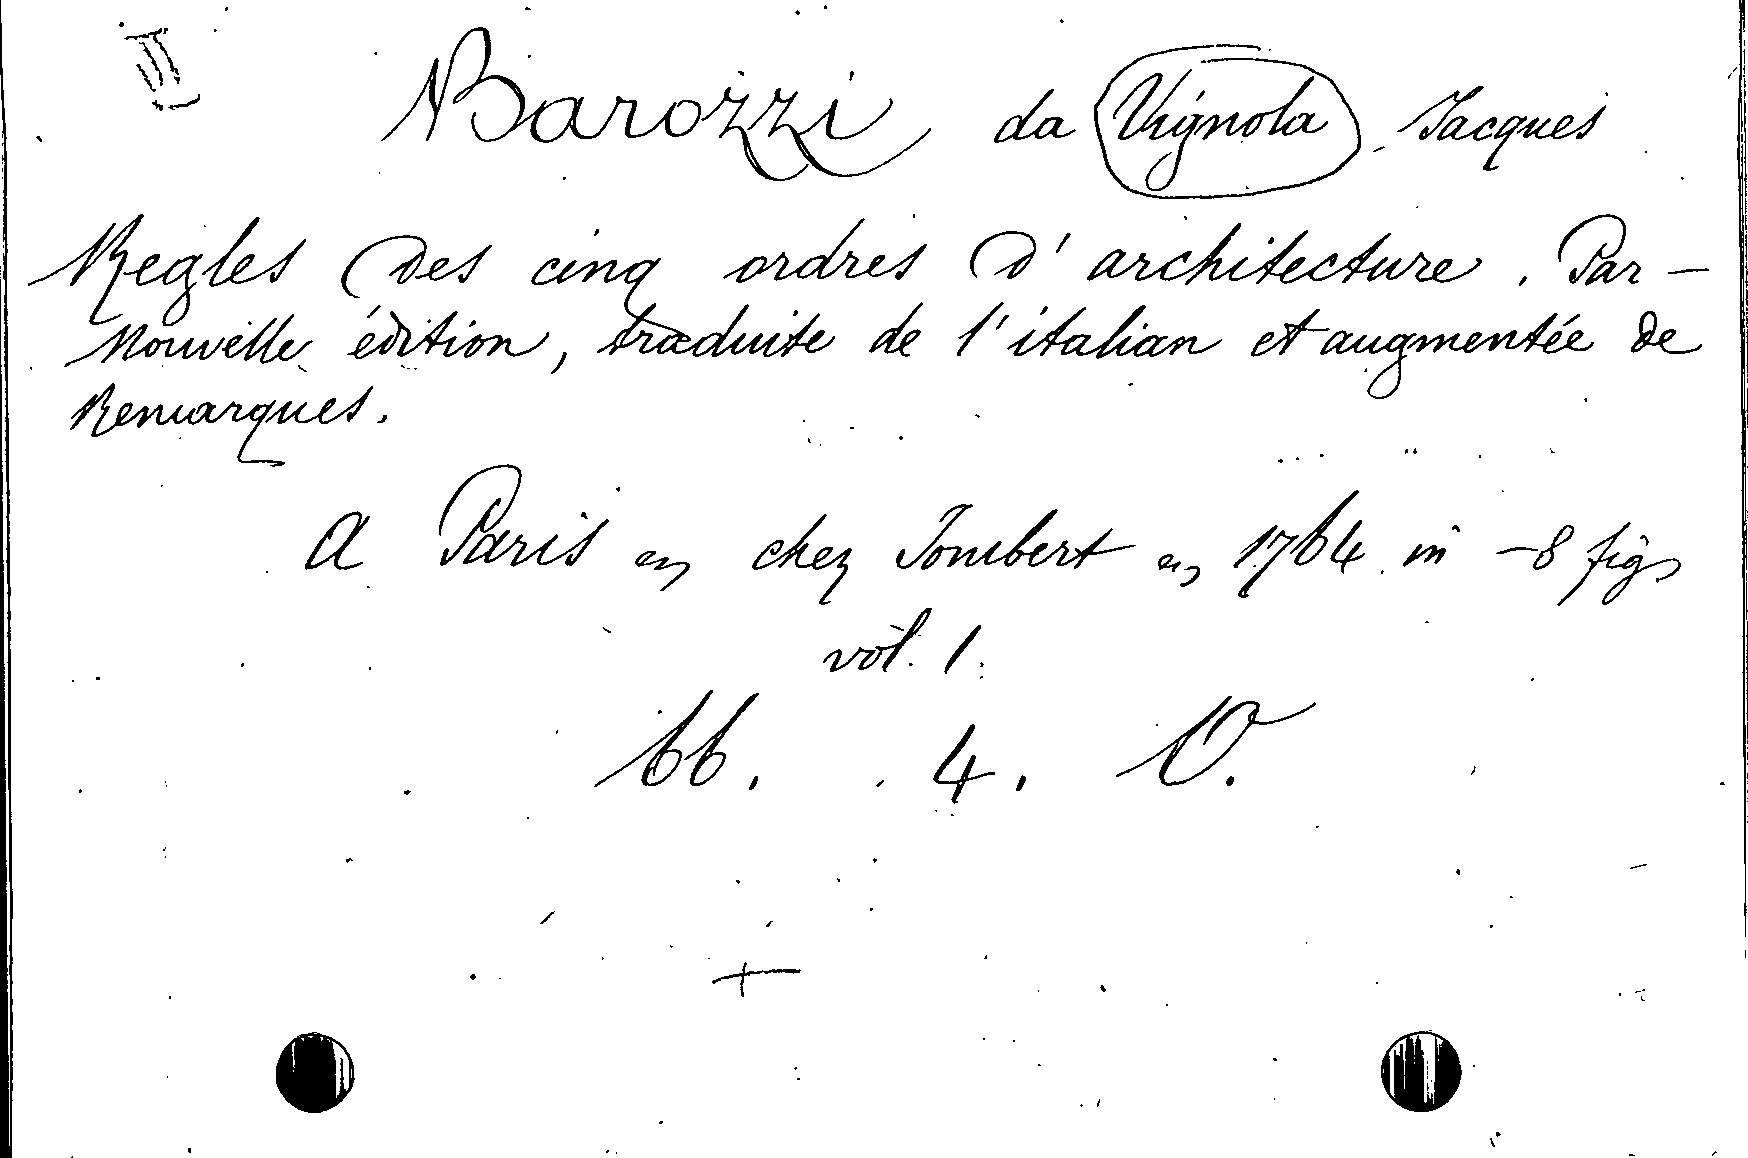 III
Barozzi da Vignola Jacques
Regles des cinq ordres d'architecture. Par —
Nouvelle édition, traduite de l'italian et augmentée de
Remarques.
A Paris chez Jombert 1764 in -8 fig
vol. 1.
66. 4. O.